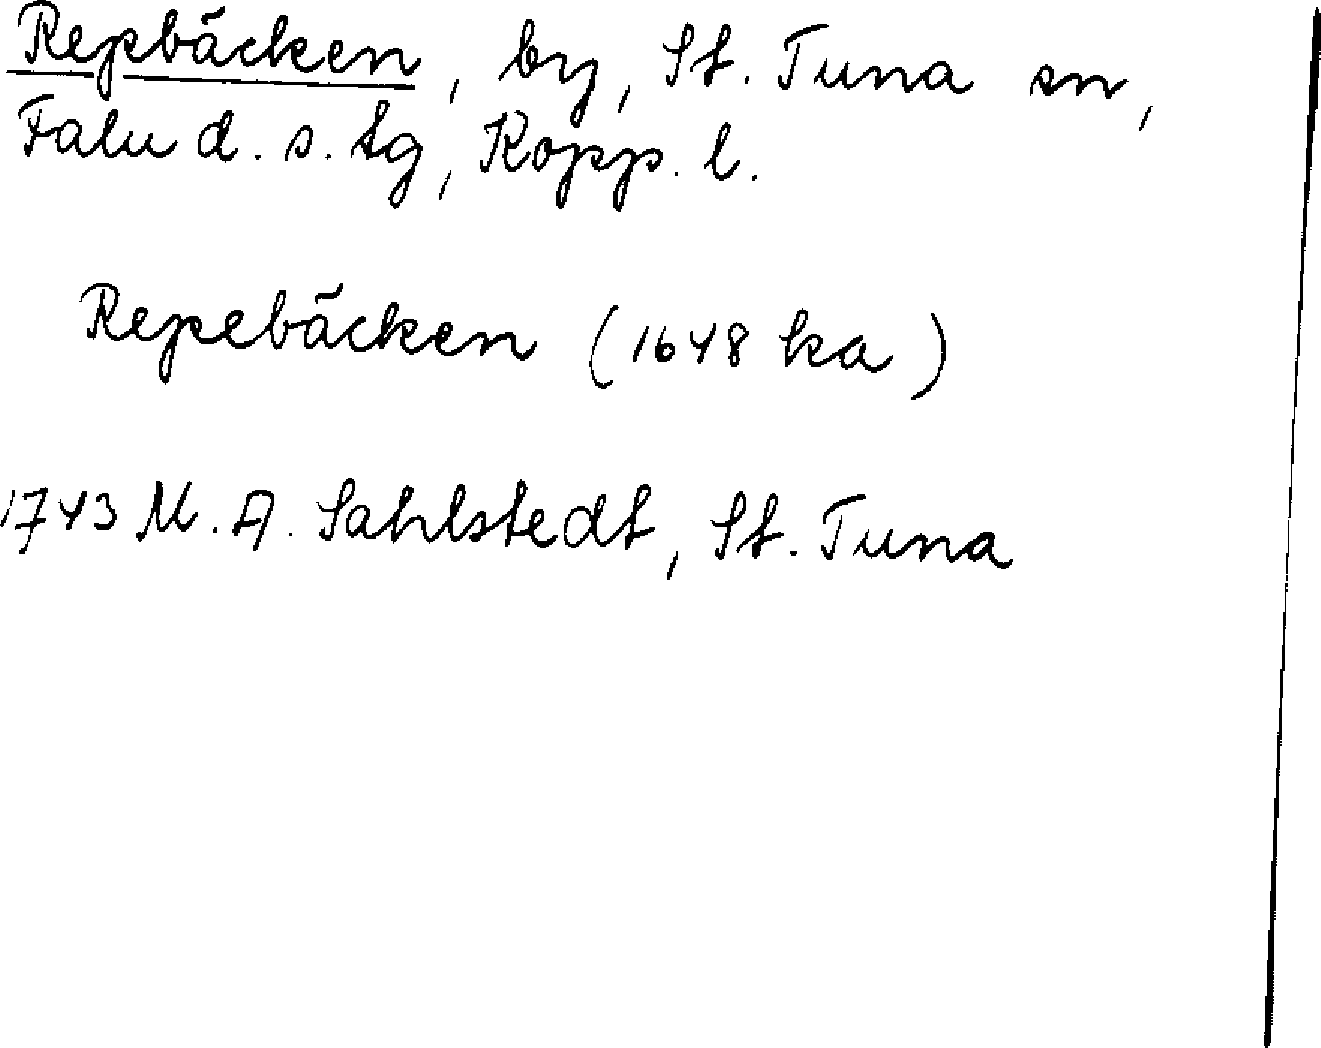 Repbäcken, by, St. Tuna sn,
Falu d. s. tg, Kopp. l.
Repebäcken (1648 ka)
1743 M. A. Sahlstedt, St. Tuna